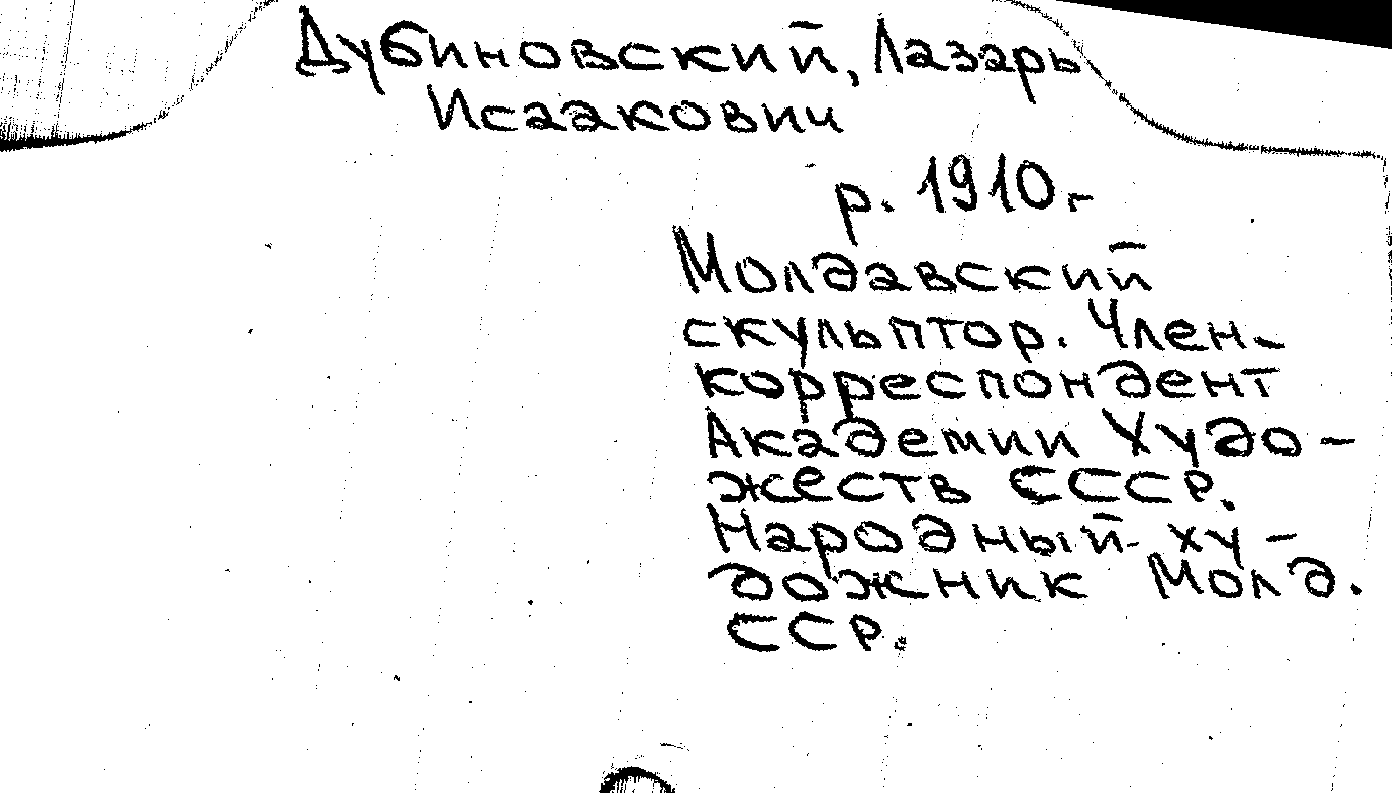 Дубиновский, Лазарь
Исаакович
р. 1910 г
Молдавский
скульптор. Член-
корреспондент
Академии Худо-
жеств СССР.
Народный ху-
дожник Молд.
ССР.